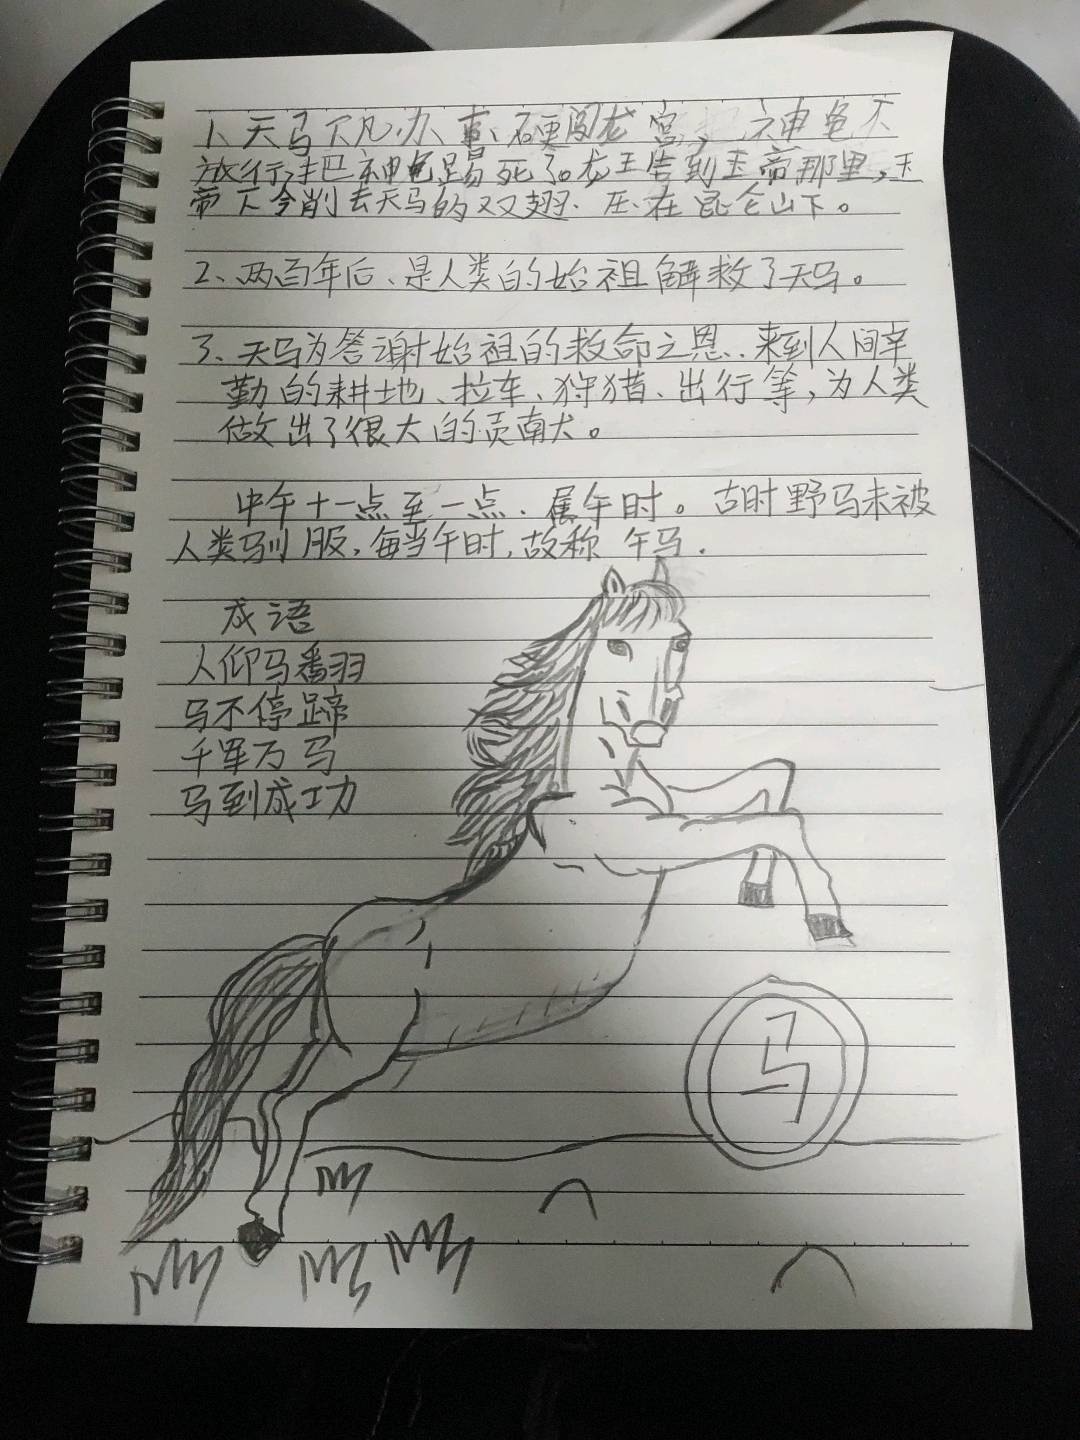 1、天马下凡办事、硬闯龙宫，神龟不
放行，把神龟踢死了。龙王告到玉帝那里，玉
帝下令削去天马的双翅、压在昆仑山下。
2、两百年后、是人类的始祖解救了天马。
3、天马为答谢始祖的救命之恩、来到人间辛
勤的耕地、拉车、狩猎、出行等，为人类
做出了很大的贡献。
中午十一点至一点、属午时。古时野马未被
人类驯服，每当午时，故称 午马.
成语
人仰马翻
马不停蹄
千军万马
马到成功
马